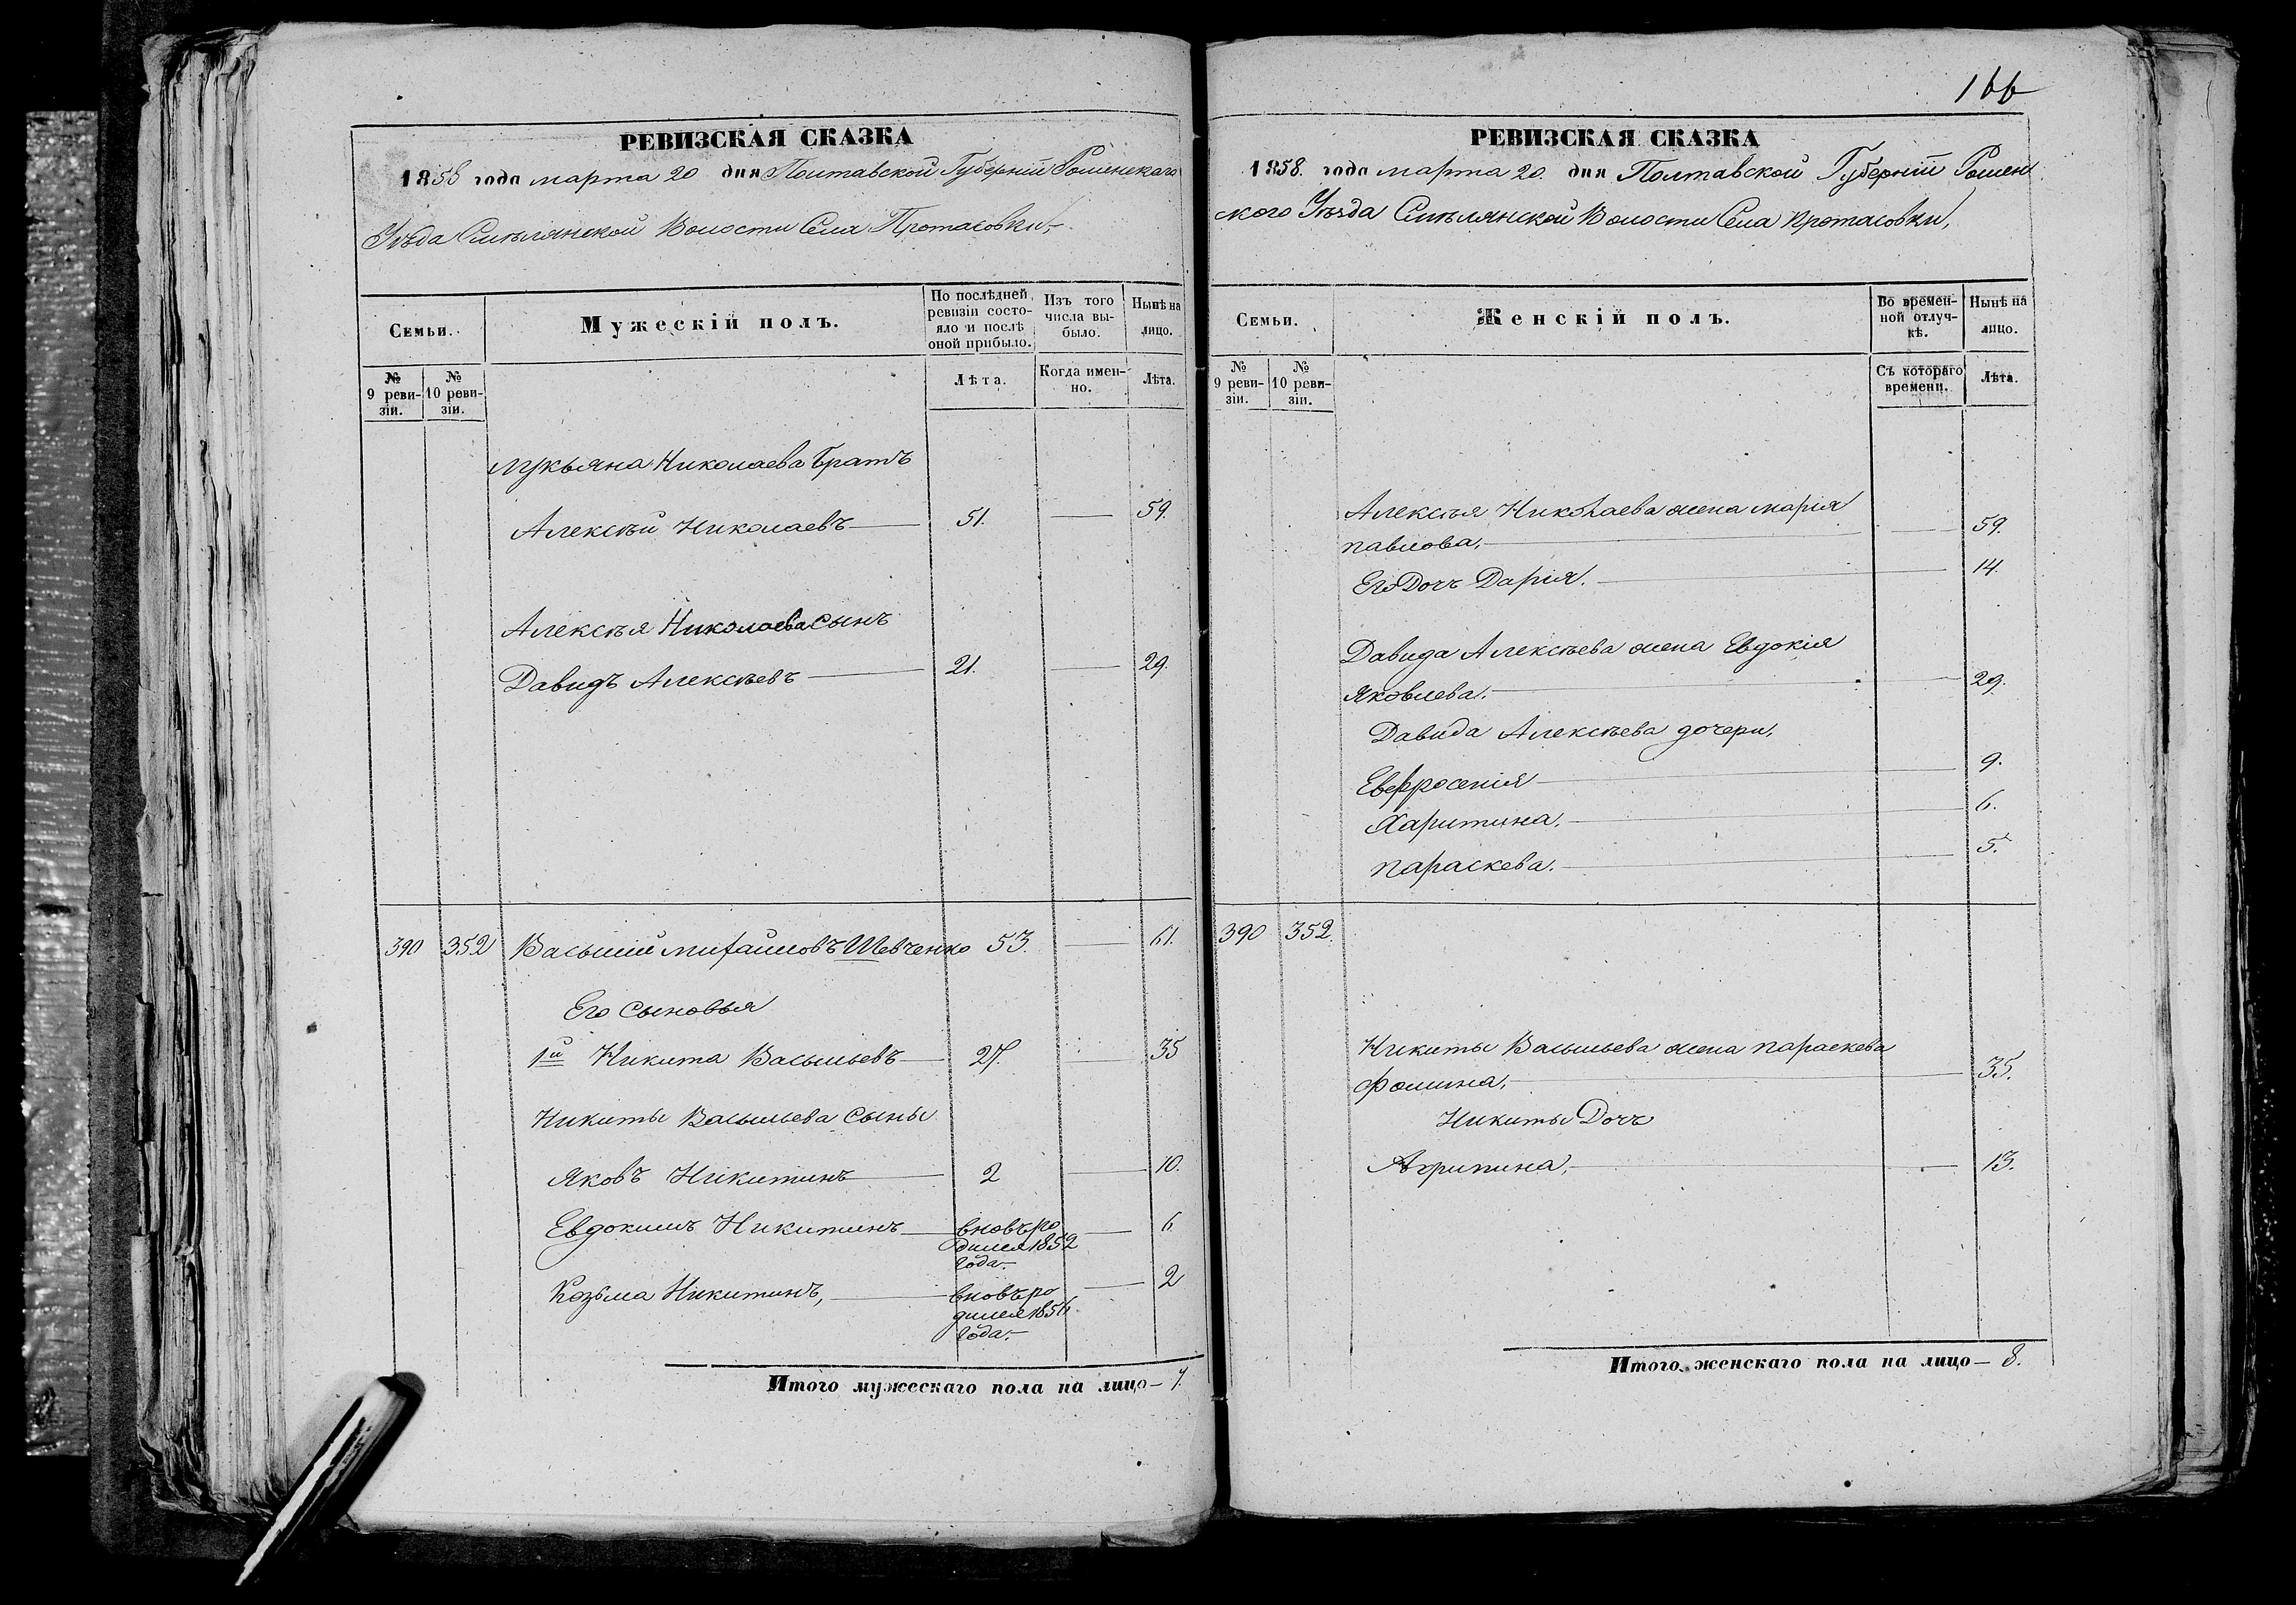 РЕВИЗСКАЯ СКАЗКА
1858 года марта 20 дня Полтавской Губерніи Роменскаго
Уѣзда Смѣлянской Волости Села Протасовки,
Семьи.
Мужескій полъ.
По послѣдней ревизіи состояло и послѣ оной прибыло.
Изъ того числа выбыло.
Нынѣ на лицо.
№ 9 ревизіи.
№ 10 ревизіи.
Лѣта.
Когда именно.
Лѣта.
Лукьяна Николаева братъ
Алексѣй Николаевъ — 51. — 59.
Алексѣя Николаева сынъ
Давидъ Алексѣевъ — 21. — 29.
390 352 Василий Михайловъ Шевченко 53. — 61.
Его сыновья
1й Никита Васильевъ — 27. — 35
Никиты Васильева сыны
Яковъ Никитинъ — 2 — 10.
Евдокимъ Никитинъ — вновь ро — 6
дился 1852
года.
Козьма Никитинъ, — вновь ро — 2
дился 1856
года.
Итого мужескаго пола на лицо — 7.
166
РЕВИЗСКАЯ СКАЗКА
1858. года марта 20. дня Полтавской Губерніи Ромен
ского Уѣзда Смѣлянской Волости Села Протасовки,
Семьи.
Женскій полъ.
Во временной отлучкѣ.
Нынѣ на лицо.
№ 9 ревизіи.
№ 10 ревизіи.
Съ котораго времени.
Лѣта.
Алексѣя Николаева жена Марія
Павлова. — 59.
Его Дочь Дарія. — 14.
Давида Алексѣева жена Евдокія
Яковлева. — 29.
Давида Алексѣева дочери,
Евфросенія — 9.
Харитина. — 6.
Параскева. — 5.
390 352.
Никиты Васильева жена Параскева
Фомина, — 35.
Никиты Дочь
Агрипина, — 13.
Итого женскаго пола на лицо — 8.